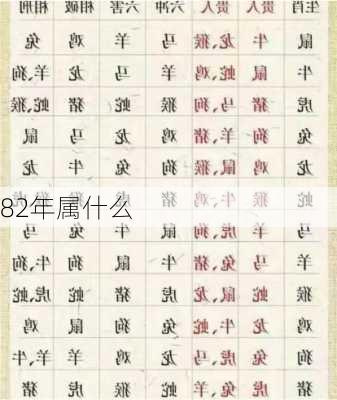 生肖 贵人 贵人 六冲 六害 相破 相刑
鼠 牛 龙、猴 马 羊 鸡 兔
牛 鼠 蛇、鸡 羊 马 龙 羊、狗
虎 猪 马、狗 猴 蛇 猪 蛇、猴
兔 狗 羊、猪 鸡 龙 马 鼠
龙 鸡 鼠、猴 狗 兔 牛 龙
蛇 猴 牛、鸡 猪
82年属什么
马 羊 虎、狗 鼠 牛 兔 马
羊 马 兔、猪 牛 鼠 狗 牛、狗
猴 蛇 鼠、龙 虎 猪 蛇 虎、蛇
鸡 龙 牛、蛇 兔 狗 鼠 鸡
狗 兔 虎、马 龙 鸡 羊 羊、牛
猪 虎 兔、羊 蛇 猴 虎 猪